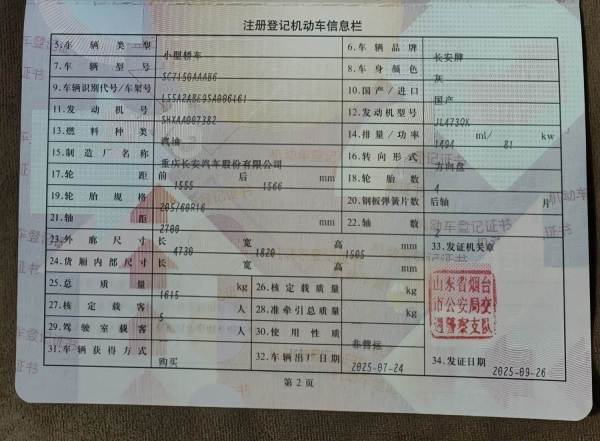 注册登记机动车信息栏
5.车辆类型 小型轿车 6.车辆品牌 长安牌
7.车辆型号 SC7150AAAB6 8.车身颜色 灰
9.车辆识别代号/车架号 10.国产/进口 国产
11.发动机号 12.发动机型号 JL473QK
13.燃料种类 汽油 14.排量/功率 1494 ml/ 81 kw
15.制造厂名称 重庆长安汽车股份有限公司 16.转向形式 方向盘
17.轮距 前 1555 后 1566 mm 18.轮胎数 4
19.轮胎规格 205/60R16 20.钢板弹簧片数 后轴 片
21.轴距 2700 mm 22.轴数 2
23.外廓尺寸 长 4730 宽 1820 高 1505 mm 33.发证机关章
24.货厢内部尺寸 长 宽 高 mm
25.总质量 1615 kg 26.核定载质量 kg
27.核定载客 5 人 28.准牵引总质量 kg
29.驾驶室载客 人 30.使用性质 非营运
31.车辆获得方式 购买 32.车辆出厂日期 2025-07-24 34.发证日期 2025-09-26
山东省烟台
市公安局交
通警察支队
第2页